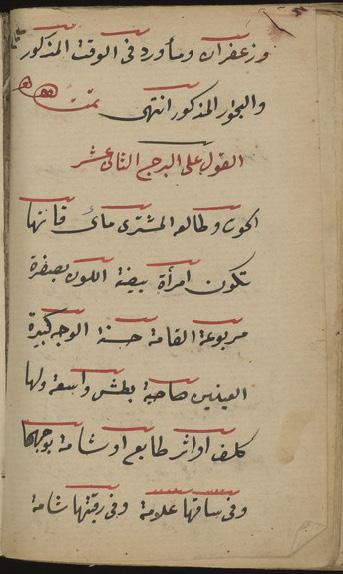 وزعفران ومأورد فى الوقت المذكور
والبخور المذكور انتهى تمت
القول على البرج الثانى عشر
الحوت وطالعه المشترى مائى فانها
تكون امرأة بيضة اللون بصفرة
مربوعة القامة حسنة الوجه كبيرة
العينين صاحبة بطش واسعة ولها
كلف او اثر طابع او شامة بوجهها
وفى ساقها علامة وفى رقبتها شامة